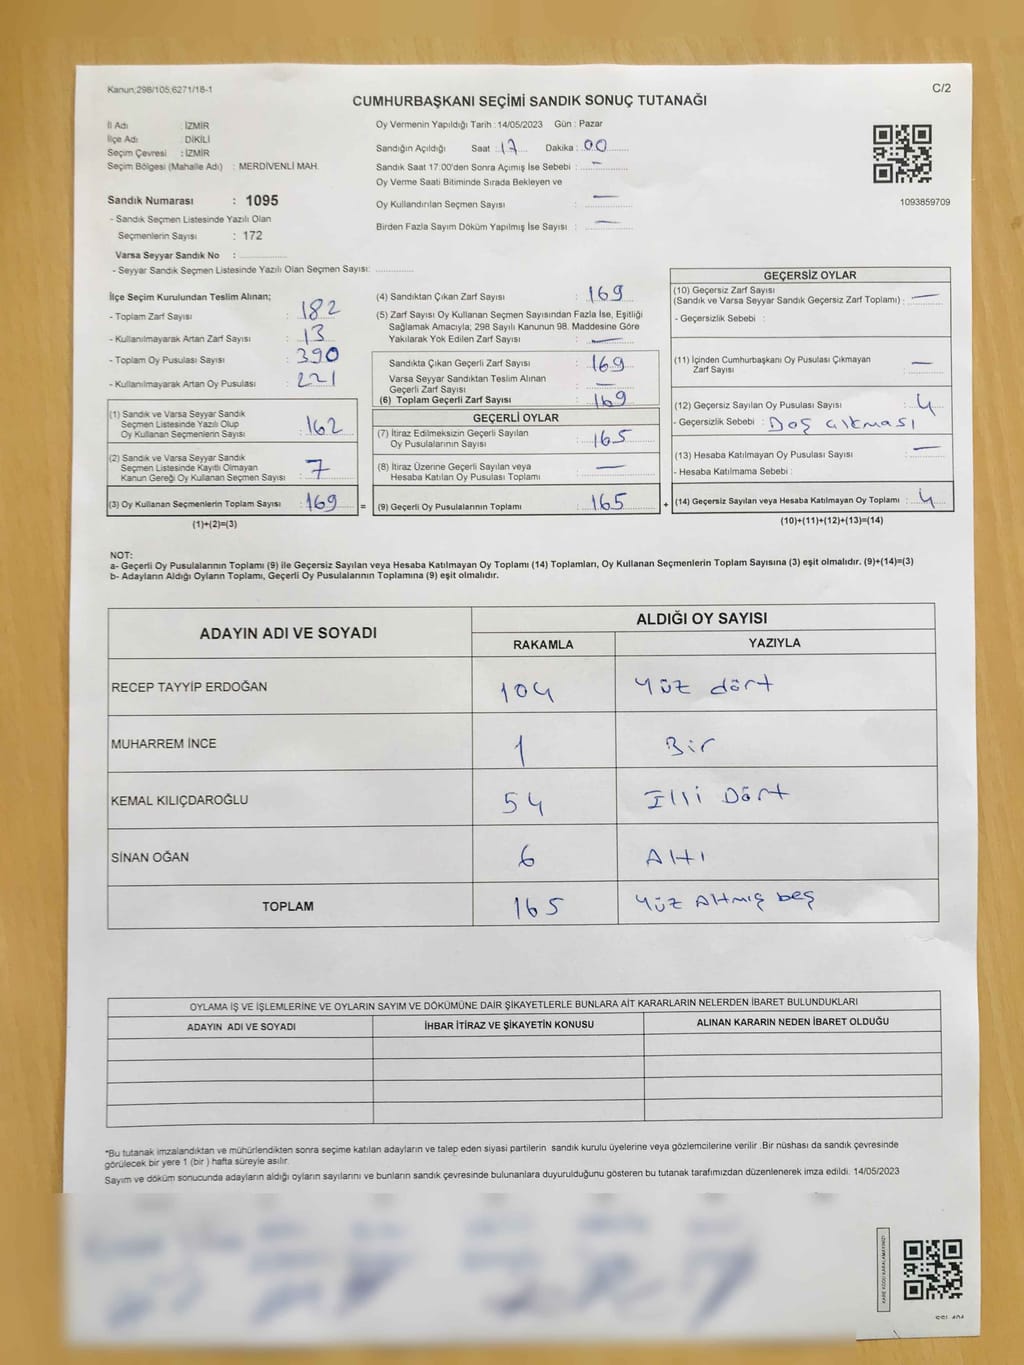 Kanun:298/105,6271/18-1
C/2
CUMHURBAŞKANI SEÇİMİ SANDIK SONUÇ TUTANAĞI
İl Adı : İZMİR
İlçe Adı : DİKİLİ
Seçim Çevresi : İZMİR
Seçim Bölgesi (Mahalle Adı) : MERDİVENLİ MAH.
Sandık Numarası : 1095
- Sandık Seçmen Listesinde Yazılı Olan
Seçmenlerin Sayısı : 172
Varsa Seyyar Sandık No :
- Seyyar Sandık Seçmen Listesinde Yazılı Olan Seçmen Sayısı:
Oy Vermenin Yapıldığı Tarih : 14/05/2023 Gün : Pazar
Sandığın Açıldığı Saat : 17 Dakika : 00
Sandık Saat 17.00'den Sonra Açımış İse Sebebi : —
Oy Verme Saati Bitiminde Sırada Bekleyen ve
Oy Kullandırılan Seçmen Sayısı : —
Birden Fazla Sayım Döküm Yapılmış İse Sayısı : —
1093859709
İlçe Seçim Kurulundan Teslim Alınan;
- Toplam Zarf Sayısı : 182
- Kullanılmayarak Artan Zarf Sayısı : 13
- Toplam Oy Pusulası Sayısı : 390
- Kullanılmayarak Artan Oy Pusulası : 221
(1) Sandık ve Varsa Seyyar Sandık
Seçmen Listesinde Yazılı Olup
Oy Kullanan Seçmenlerin Sayısı : 162
(2) Sandık ve Varsa Seyyar Sandık
Seçmen Listesinde Kayıtlı Olmayan
Kanun Gereği Oy Kullanan Seçmen Sayısı : 7
(3) Oy Kullanan Seçmenlerin Toplam Sayısı : 169
(1)+(2)=(3)
=
(4) Sandıktan Çıkan Zarf Sayısı : 169
(5) Zarf Sayısı Oy Kullanan Seçmen Sayısından Fazla İse, Eşitliği
Sağlamak Amacıyla; 298 Sayılı Kanunun 98. Maddesine Göre
Yakılarak Yok Edilen Zarf Sayısı : —
Sandıkta Çıkan Geçerli Zarf Sayısı : 169
Varsa Seyyar Sandıktan Teslim Alınan
Geçerli Zarf Sayısı : —
(6) Toplam Geçerli Zarf Sayısı : 169
GEÇERLİ OYLAR
(7) İtiraz Edilmeksizin Geçerli Sayılan
Oy Pusulalarının Sayısı : 165
(8) İtiraz Üzerine Geçerli Sayılan veya
Hesaba Katılan Oy Pusulası Toplamı : —
(9) Geçerli Oy Pusulalarının Toplamı : 165
+
GEÇERSİZ OYLAR
(10) Geçersiz Zarf Sayısı
(Sandık ve Varsa Seyyar Sandık Geçersiz Zarf Toplamı) : —
- Geçersizlik Sebebi :
(11) İçinden Cumhurbaşkanı Oy Pusulası Çıkmayan
Zarf Sayısı : —
(12) Geçersiz Sayılan Oy Pusulası Sayısı : 4
- Geçersizlik Sebebi : Boş çıkması
(13) Hesaba Katılmayan Oy Pusulası Sayısı : —
- Hesaba Katılmama Sebebi :
(14) Geçersiz Sayılan veya Hesaba Katılmayan Oy Toplamı : 4
(10)+(11)+(12)+(13)=(14)
NOT:
a- Geçerli Oy Pusulalarının Toplamı (9) ile Geçersiz Sayılan veya Hesaba Katılmayan Oy Toplamı (14) Toplamları, Oy Kullanan Seçmenlerin Toplam Sayısına (3) eşit olmalıdır. (9)+(14)=(3)
b- Adayların Aldığı Oyların Toplamı, Geçerli Oy Pusulalarının Toplamına (9) eşit olmalıdır.
ADAYIN ADI VE SOYADI
ALDIĞI OY SAYISI
RAKAMLA YAZIYLA
RECEP TAYYİP ERDOĞAN 104 Yüz dört
MUHARREM İNCE 1 Bir
KEMAL KILIÇDAROĞLU 54 Elli Dört
SİNAN OĞAN 6 Altı
TOPLAM 165 Yüz Altmış beş
OYLAMA İŞ VE İŞLEMLERİNE VE OYLARIN SAYIM VE DÖKÜMÜNE DAİR ŞİKAYETLERLE BUNLARA AİT KARARLARIN NELERDEN İBARET BULUNDUKLARI
ADAYIN ADI VE SOYADI İHBAR İTİRAZ VE ŞİKAYETİN KONUSU ALINAN KARARIN NEDEN İBARET OLDUĞU
*Bu tutanak imzalandıktan ve mühürlendikten sonra seçime katılan adayların ve talep eden siyasi partilerin sandık kurulu üyelerine veya gözlemcilerine verilir .Bir nüshası da sandık çevresinde
görülecek bir yere 1 (bir ) hafta süreyle asılır.
Sayım ve döküm sonucunda adayların aldığı oyların sayılarını ve bunların sandık çevresinde bulunanlara duyurulduğunu gösteren bu tutanak tarafımızdan düzenlenerek imza edildi. 14/05/2023
KARE KODU KARALAMAYINIZ!